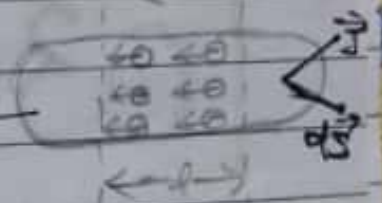 J
dS
l